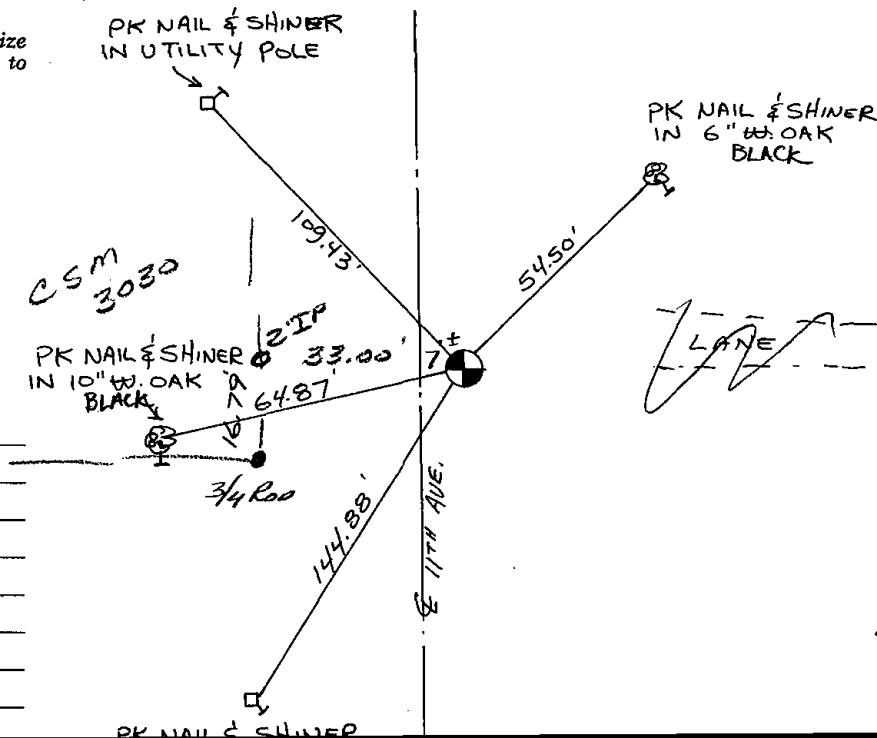 ize
to
PK NAIL & SHINER
IN UTILITY POLE
PK NAIL & SHINER
IN 6" W. OAK
BLACK
109.43'
54.50'
CSM
3030
2" IP
33.00'
7'±
LANE
PK NAIL & SHINER
IN 10" W. OAK
BLACK
64.87'
3/4 ROD
144.88'
℄ 11TH AVE.
PK NAIL & SHINER